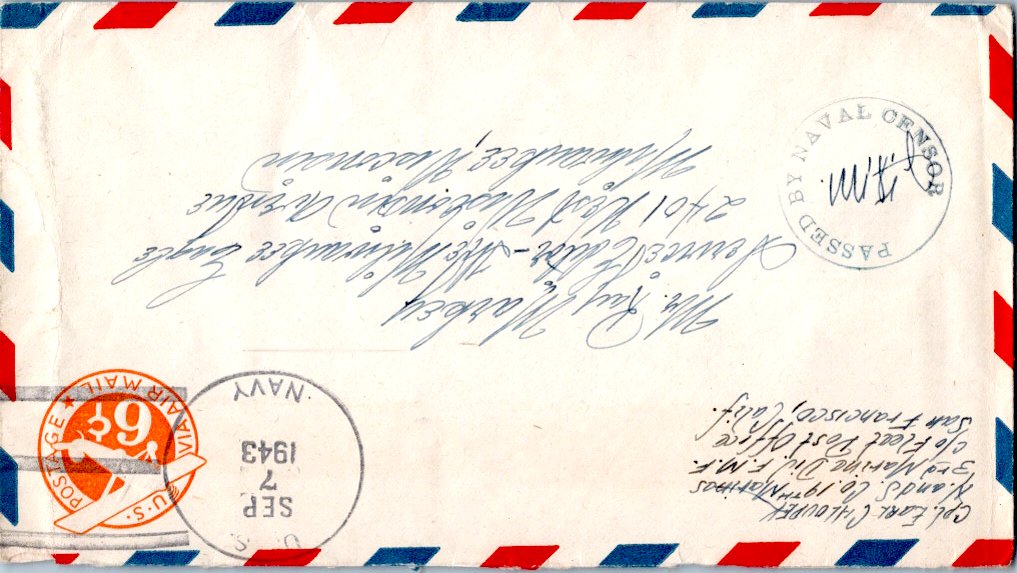 Cpl. Earl Chloupek
H and S. Co. 19TH Marines
3rd Marine Div. F.M.F.
c/o Fleet Post Office
San Francisco, Calif.
U. S.
SEP
7
1943
NAVY
U.S. POSTAGE
VIA AIR MAIL
6¢
Mr. Ray Markey
Service Editor - The Milwaukee Eagle
2401 West Wisconsin Avenue
Milwaukee, Wisconsin
PASSED BY NAVAL CENSOR